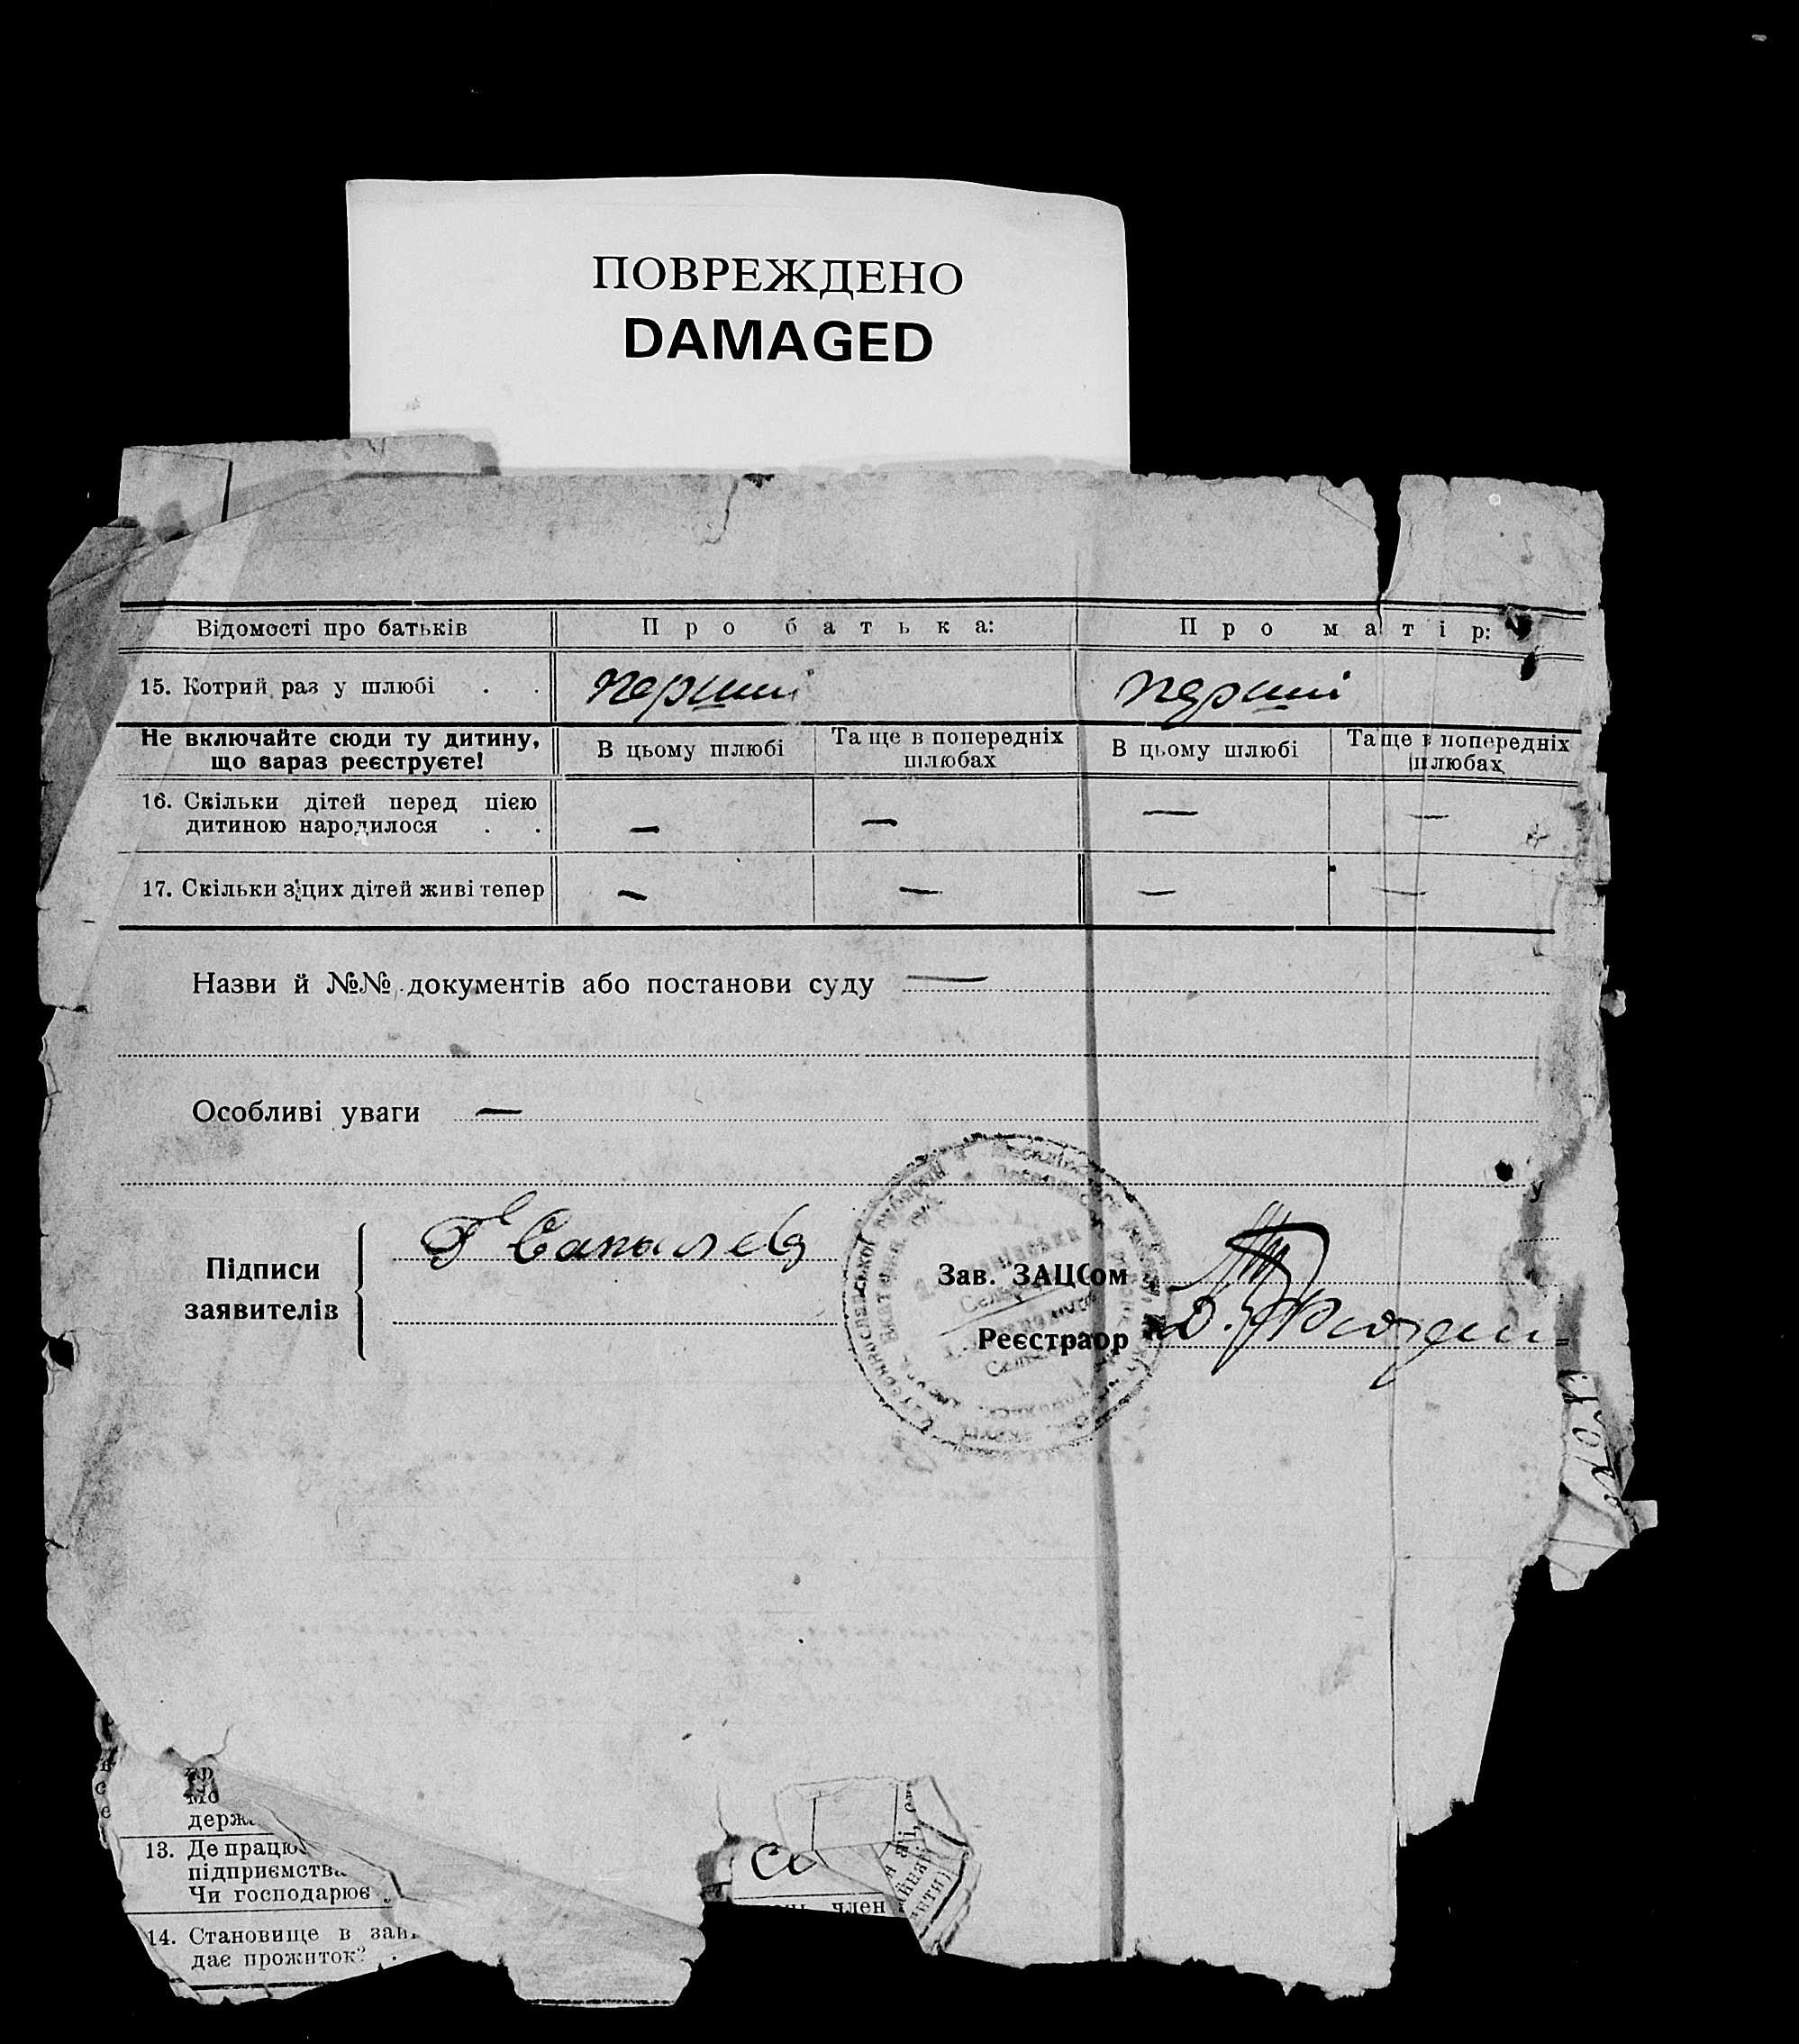 ПОВРЕЖДЕНО
DAMAGED
Відомості про батьків Про батька: Про матір:
15. Котрий раз у шлюбі . . перший перший
Не включайте сюди ту дитину, що вараз реєструєте! В цьому шлюбі Та ще в попередніх шлюбах В цьому шлюбі Та ще в попередніх шлюбах
16. Скільки дітей перед цією
дитиною народилося . . — — — —
17. Скільки з цих дітей живі тепер — — — —
Назви й №№ документів або постанови суду —
Особливі уваги —
Підписи
заявителів
Зав. ЗАЦСом
Реєстраор
держ
13. Де працює
підприємства
Чи господарює
14. Становище в зан
дає прожиток? .
член